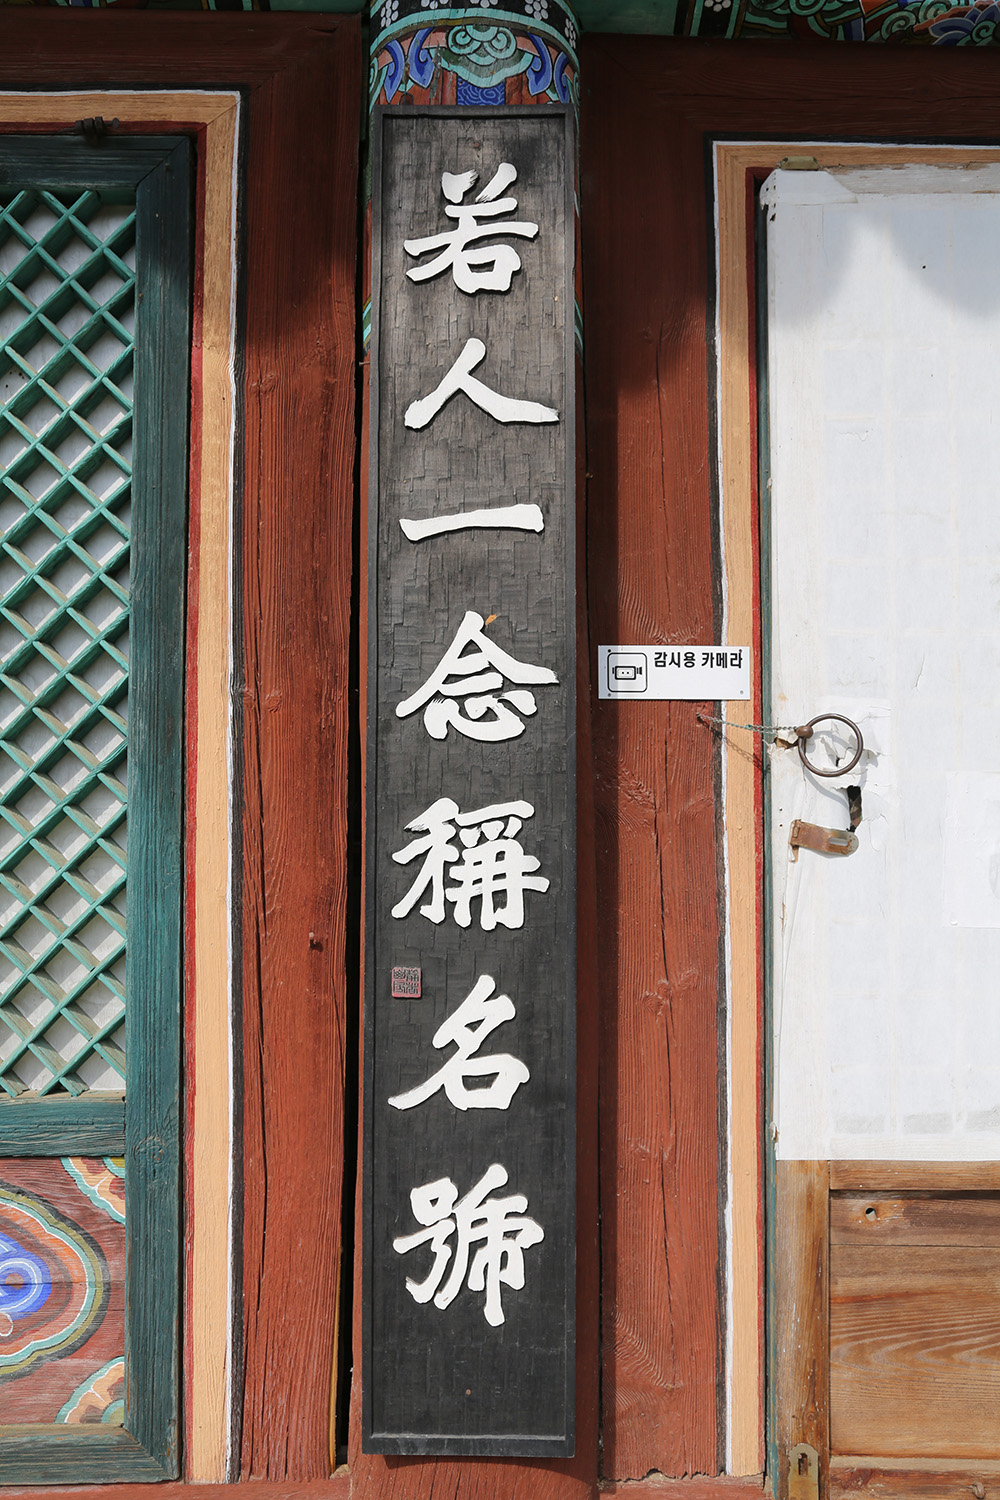 若人一念稱名號
감시용 카메라